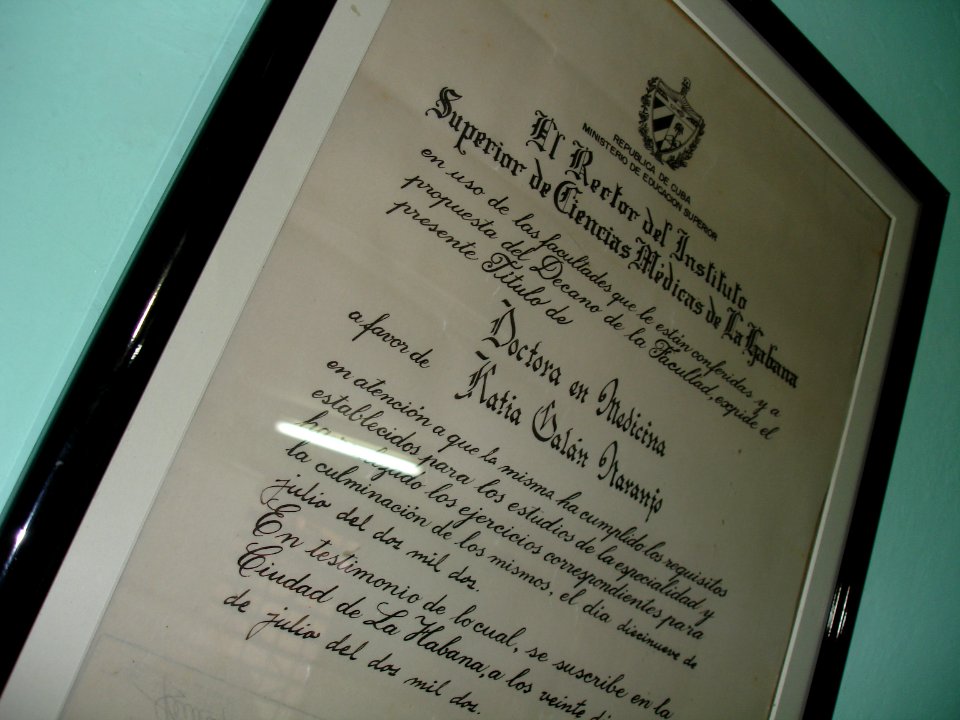 REPUBLICA DE CUBA
MINISTERIO DE EDUCACION SUPERIOR
El Rector del Instituto
Superior de Ciencias Médicas de La Habana
en uso de las facultades que le están conferidas y a
propuesta del Decano de la Facultad, expide el
presente Título de
Doctora en Medicina
a favor de Katia Galán Naranjo
en atención a que la misma ha cumplido los requisitos
establecidos para los estudios de la especialidad y
los ejercicios correspondientes para
la culminación de los mismos, el día diecinueve de
julio del dos mil dos.
En testimonio de lo cual, se suscribe en la
Ciudad de La Habana, a los veinte
de julio del dos mil dos.